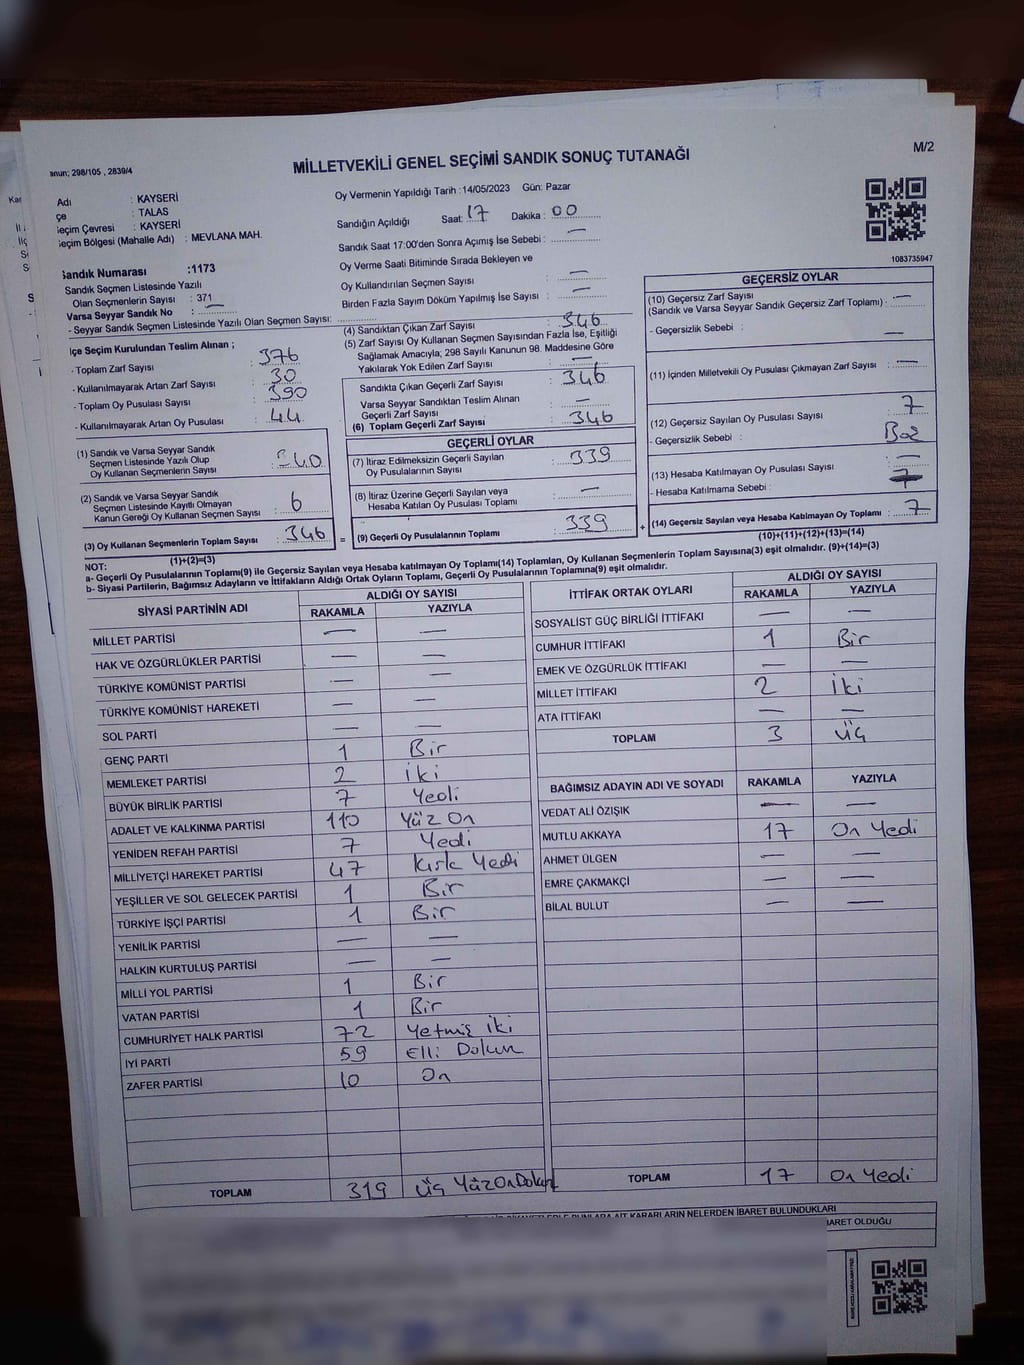 M/2
MİLLETVEKİLİ GENEL SEÇİMİ SANDIK SONUÇ TUTANAĞI
anun; 298/105 , 2839/4
Adı : KAYSERİ
çe : TALAS
Seçim Çevresi : KAYSERİ
Seçim Bölgesi (Mahalle Adı) : MEVLANA MAH.
Sandık Numarası :1173
Sandık Seçmen Listesinde Yazılı
Olan Seçmenlerin Sayısı : 371
Varsa Seyyar Sandık No : —
- Seyyar Sandık Seçmen Listesinde Yazılı Olan Seçmen Sayısı:
Oy Vermenin Yapıldığı Tarih : 14/05/2023 Gün: Pazar
Sandığın Açıldığı Saat: 17 Dakika : 00
Sandık Saat 17:00'den Sonra Açımış İse Sebebi : —
Oy Verme Saati Bitiminde Sırada Bekleyen ve
Oy Kullandırılan Seçmen Sayısı : —
Birden Fazla Sayım Döküm Yapılmış İse Sayısı : —
1083735947
İlçe Seçim Kurulundan Teslim Alınan ;
- Toplam Zarf Sayısı : 376
- Kullanılmayarak Artan Zarf Sayısı : 30
- Toplam Oy Pusulası Sayısı : 390
- Kullanılmayarak Artan Oy Pusulası : 44
(1) Sandık ve Varsa Seyyar Sandık
Seçmen Listesinde Yazılı Olup
Oy Kullanan Seçmenlerin Sayısı : 340
(2) Sandık ve Varsa Seyyar Sandık
Seçmen Listesinde Kayıtlı Olmayan
Kanun Gereği Oy Kullanan Seçmen Sayısı : 6
(3) Oy Kullanan Seçmenlerin Toplam Sayısı : 346
(1)+(2)=(3)
(4) Sandıktan Çıkan Zarf Sayısı : 346
(5) Zarf Sayısı Oy Kullanan Seçmen Sayısından Fazla İse, Eşitliği
Sağlamak Amacıyla; 298 Sayılı Kanunun 98. Maddesine Göre
Yakılarak Yok Edilen Zarf Sayısı : —
Sandıkta Çıkan Geçerli Zarf Sayısı : 346
Varsa Seyyar Sandıktan Teslim Alınan
Geçerli Zarf Sayısı : —
(6) Toplam Geçerli Zarf Sayısı : 346
GEÇERLİ OYLAR
(7) İtiraz Edilmeksizin Geçerli Sayılan
Oy Pusulalarının Sayısı : 339
(8) İtiraz Üzerine Geçerli Sayılan veya
Hesaba Katılan Oy Pusulası Toplamı : —
= (9) Geçerli Oy Pusulalarının Toplamı : 339 +
GEÇERSİZ OYLAR
(10) Geçersiz Zarf Sayısı
(Sandık ve Varsa Seyyar Sandık Geçersiz Zarf Toplamı) : —
- Geçersizlik Sebebi : —
(11) İçinden Milletvekili Oy Pusulası Çıkmayan Zarf Sayısı : —
(12) Geçersiz Sayılan Oy Pusulası Sayısı : 7
- Geçersizlik Sebebi : Boş
(13) Hesaba Katılmayan Oy Pusulası Sayısı : —
- Hesaba Katılmama Sebebi :
(14) Geçersiz Sayılan veya Hesaba Katılmayan Oy Toplamı : 7
(10)+(11)+(12)+(13)=(14)
NOT:
a- Geçerli Oy Pusulalarının Toplamı(9) ile Geçersiz Sayılan veya Hesaba katılmayan Oy Toplamı(14) Toplamları, Oy Kullanan Seçmenlerin Toplam Sayısına(3) eşit olmalıdır. (9)+(14)=(3)
b- Siyasi Partilerin, Bağımsız Adayların ve İttifakların Aldığı Ortak Oyların Toplamı, Geçerli Oy Pusulalarının Toplamına(9) eşit olmalıdır.
SİYASİ PARTİNİN ADI ALDIĞI OY SAYISI
RAKAMLA YAZIYLA
MİLLET PARTİSİ — —
HAK VE ÖZGÜRLÜKLER PARTİSİ — —
TÜRKİYE KOMÜNİST PARTİSİ — —
TÜRKİYE KOMÜNİST HAREKETİ — —
SOL PARTİ — —
GENÇ PARTİ 1 Bir
MEMLEKET PARTİSİ 2 İki
BÜYÜK BİRLİK PARTİSİ 7 Yedi
ADALET VE KALKINMA PARTİSİ 110 Yüz On
YENİDEN REFAH PARTİSİ 7 Yedi
MİLLİYETÇİ HAREKET PARTİSİ 47 Kırk Yedi
YEŞİLLER VE SOL GELECEK PARTİSİ 1 Bir
TÜRKİYE İŞÇİ PARTİSİ 1 Bir
YENİLİK PARTİSİ — —
HALKIN KURTULUŞ PARTİSİ — —
MİLLİ YOL PARTİSİ 1 Bir
VATAN PARTİSİ 1 Bir
CUMHURİYET HALK PARTİSİ 72 Yetmiş iki
İYİ PARTİ 59 Elli Dokuz
ZAFER PARTİSİ 10 On
TOPLAM 319 Üç Yüz On Dokuz
İTTİFAK ORTAK OYLARI ALDIĞI OY SAYISI
RAKAMLA YAZIYLA
SOSYALİST GÜÇ BİRLİĞİ İTTİFAKI — —
CUMHUR İTTİFAKI 1 Bir
EMEK VE ÖZGÜRLÜK İTTİFAKI — —
MİLLET İTTİFAKI 2 İki
ATA İTTİFAKI — —
TOPLAM 3 Üç
BAĞIMSIZ ADAYIN ADI VE SOYADI RAKAMLA YAZIYLA
VEDAT ALİ ÖZIŞIK — —
MUTLU AKKAYA 17 On Yedi
AHMET ÜLGEN — —
EMRE ÇAKMAKÇİ — —
BİLAL BULUT — —
TOPLAM 17 On Yedi
KARARLARIN NELERDEN İBARET BULUNDUKLARI
İBARET OLDUĞU